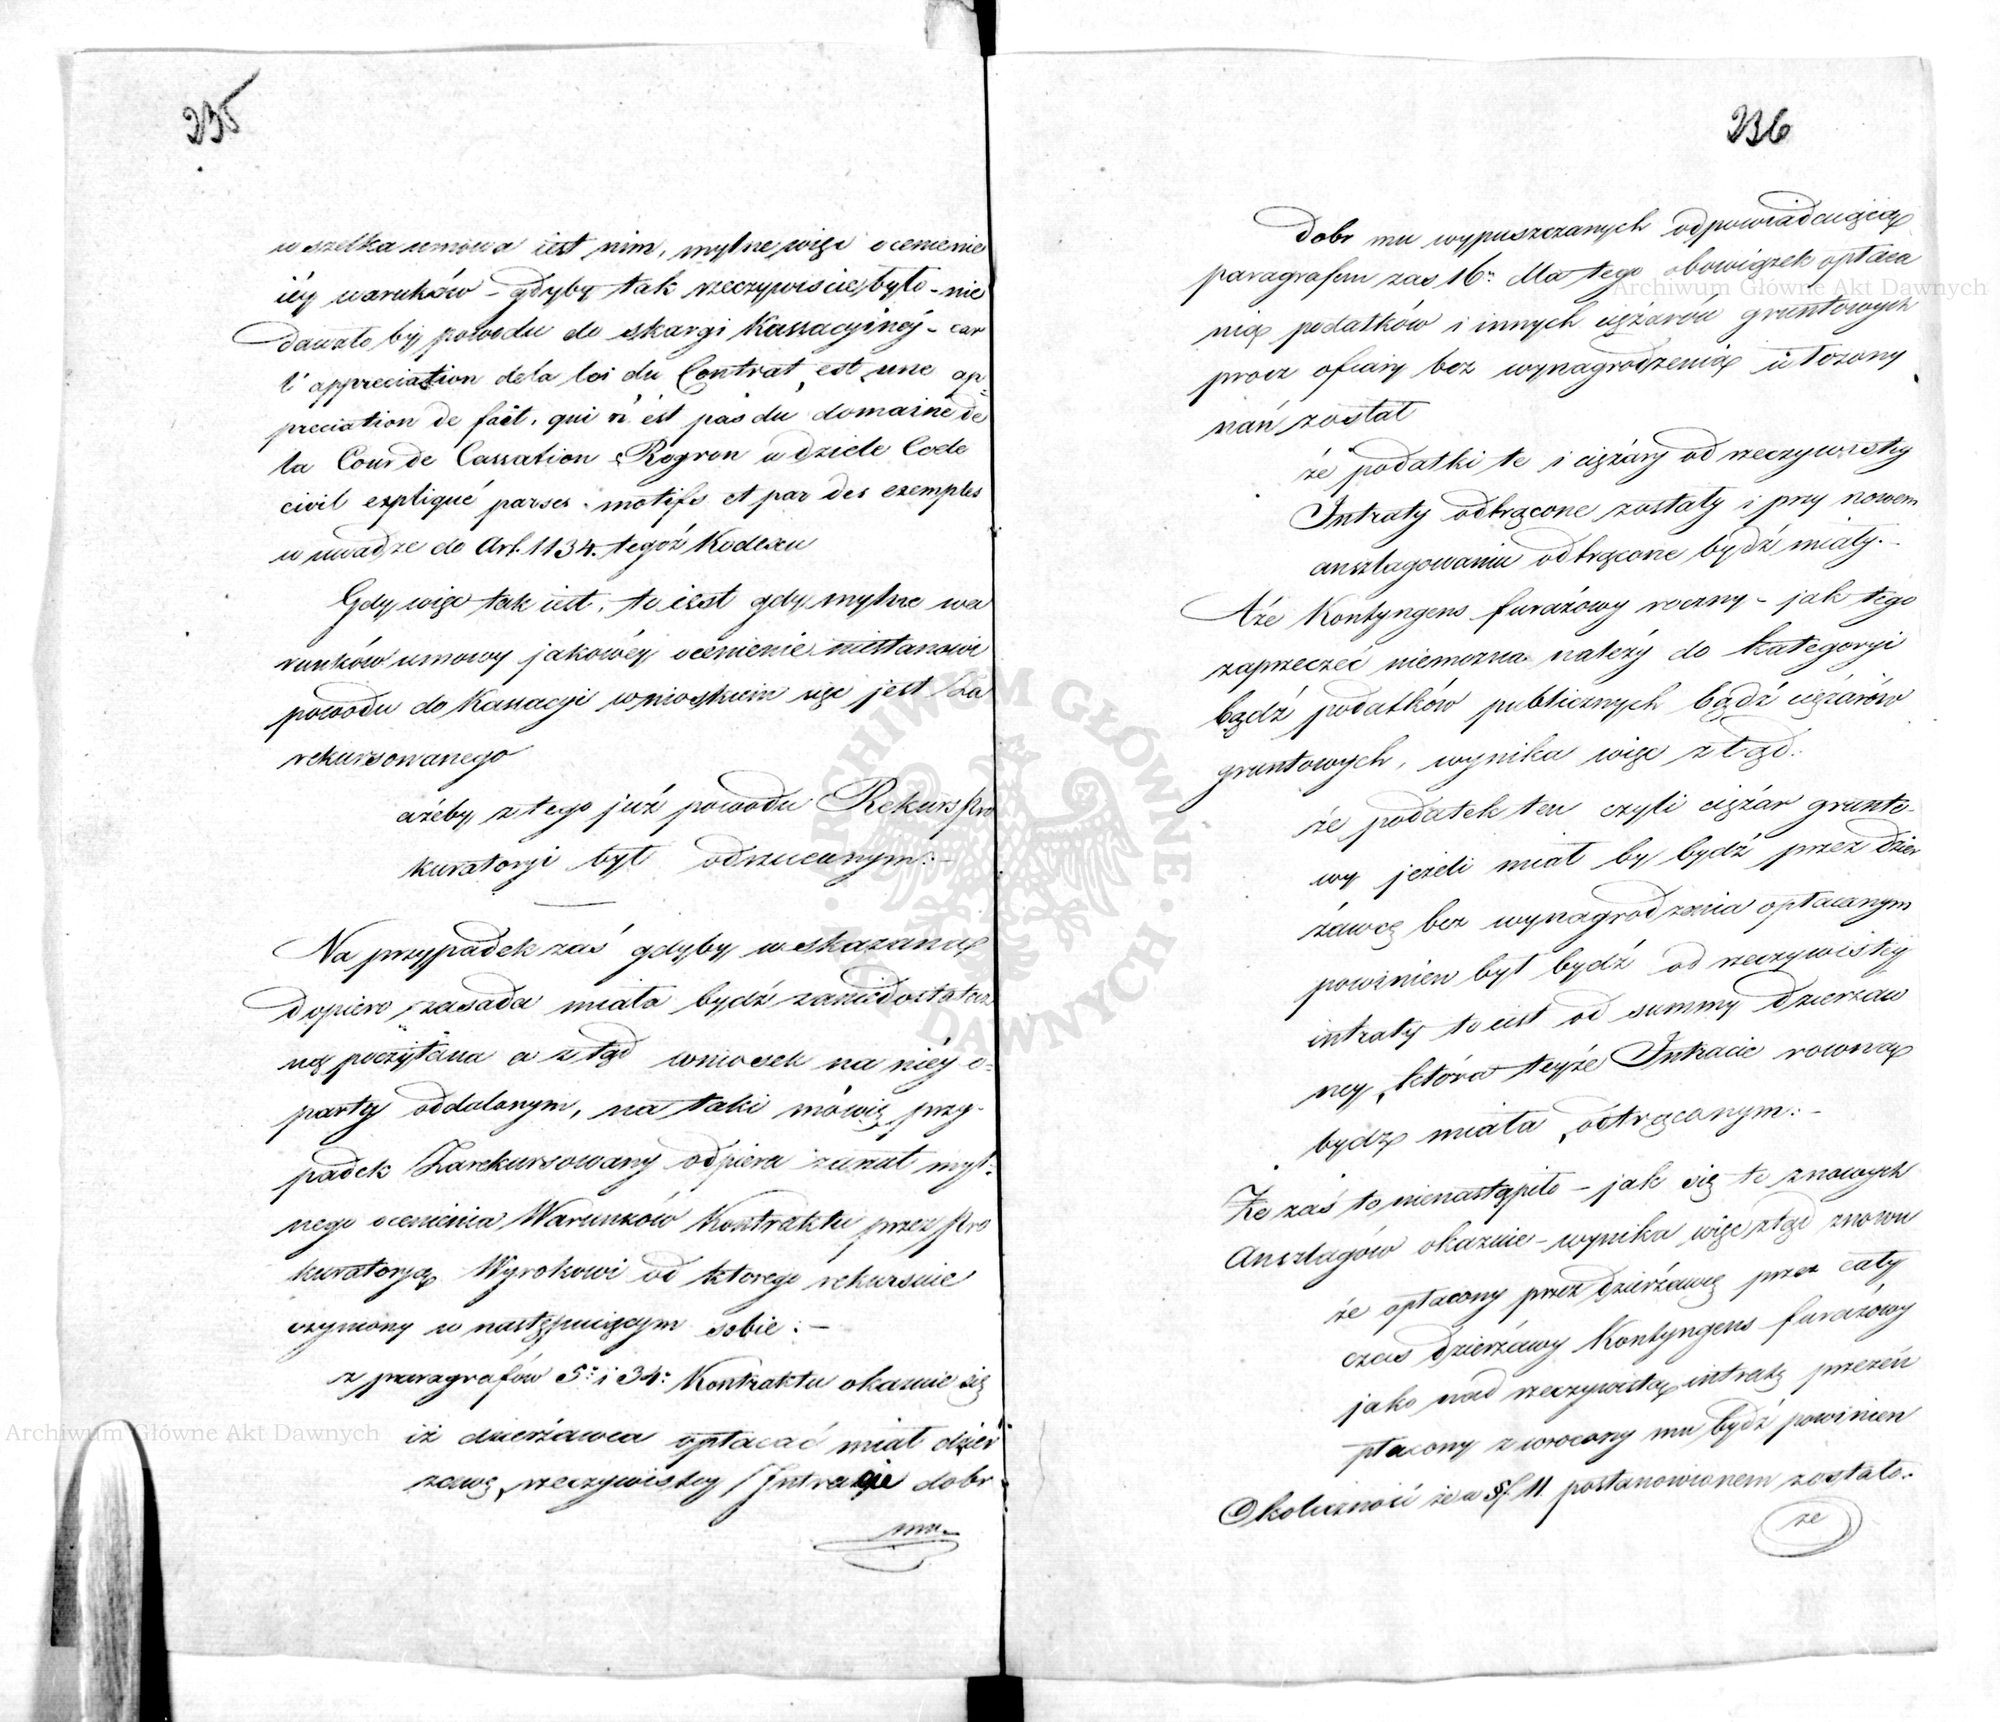 235
wszelka umowa iest nim, mylne więc ocenienie
iéy waruków – gdyby tak rzeczywiście było – nie
dawało by powodu do skargi Kassacyinéj – car
l'appreciation de la loi du Contrat, est une ap-
preciation de fait, qui n'est pas du domaine de
la Cour de Cassation Rogron w dziele Code
civil expliqué par ses motifs et par des exemples
w uwadze do Art. 1134. tegoż Kodexu
Gdy więc tak iest, to iest gdy mylne wa
runków umowy jakowéy ocenienie niestanowi
powodu do Kassacyi wnioskiem więc jest Za
rekursowanego
ażeby z tego już powodu Rekurs Pro
kuratoryi był odrzuconym: –
Na przypadek zaś gdyby wskazana
dopiero zasada miała bydź zaniedostatecz
ną poczytana a ztąd wniosek na niéy o-
party oddalonym, na taki mówię przy-
padek Zarekursowany odpiera zarzut myl-
nego ocenienia Warunków Kontraktu przez Pro
kuratoryą Wyrokowi od ktorego rekursuie
czyniony w następuiącym sobie: –
z paragrafów 5º i 34º Kontraktu okazuie się
iż dzierżawca opłacać miał dzier
zawę rzeczywistey Intracie dobr
mu.
236
dobr mu wypuszczanych odpowiadaiącą
paragrafem zas 16º Ma tego obowiązek opłaca
nia podatków i innych ciężarów gruntowych
procz ofiary bez wynagrodzenia włożony
nań został
że podatki te i ciężary od rzeczywisty
Intraty odtrącone zostały i przy nowem
anszlagowaniu odtrącone bydź miały. –
A że Kontyngens furażowy roczny – jak tego
zaprzeczeć niemozna należy do kategoryi
bądź podatków publicznych bądź ciężarów
gruntowych, wynika więc ztąd:
że podatek ten czyli ciężar grunto-
wy jeżeli miał by bydź przez dzier
żawcę bez wynagrodzenia opłacanym
powinien był bydź od rzeczywistéy
intraty to iest od summy dzierzaw
ney, która teyże Intracie rowną
bydz miała, odtrąconym: –
Ze zaś to nienastąpiło – jak się to z nowych
Anszlagów okazuie – wynika więc ztąd znowu
że opłacony przez dzierżawcę przez cały
czas dzierżawy Kontyngens furażowy
jako nad rzeczywistą intratę przezeń
płacony zwrocony mu bydź powinien
Okoliczność że w §f. 11 postanowionem zostało:
ze
Archiwum Główne Akt Dawnych
Archiwum Główne Akt Dawnych
ARCHIWUM GŁÓWNE AKT DAWNYCH